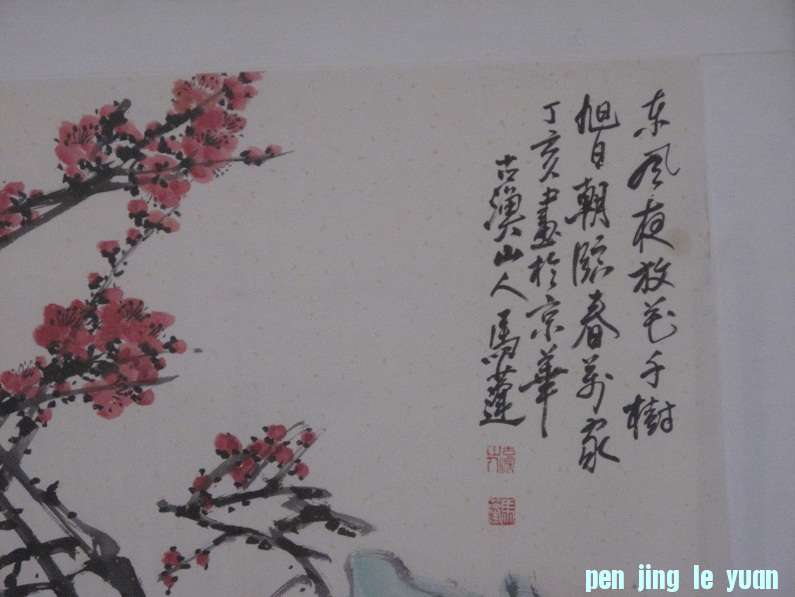 东风夜放花千樹
旭日朝臨春萬家
丁亥畫於京華
古漁山人馬蓮
pen jing le yuan